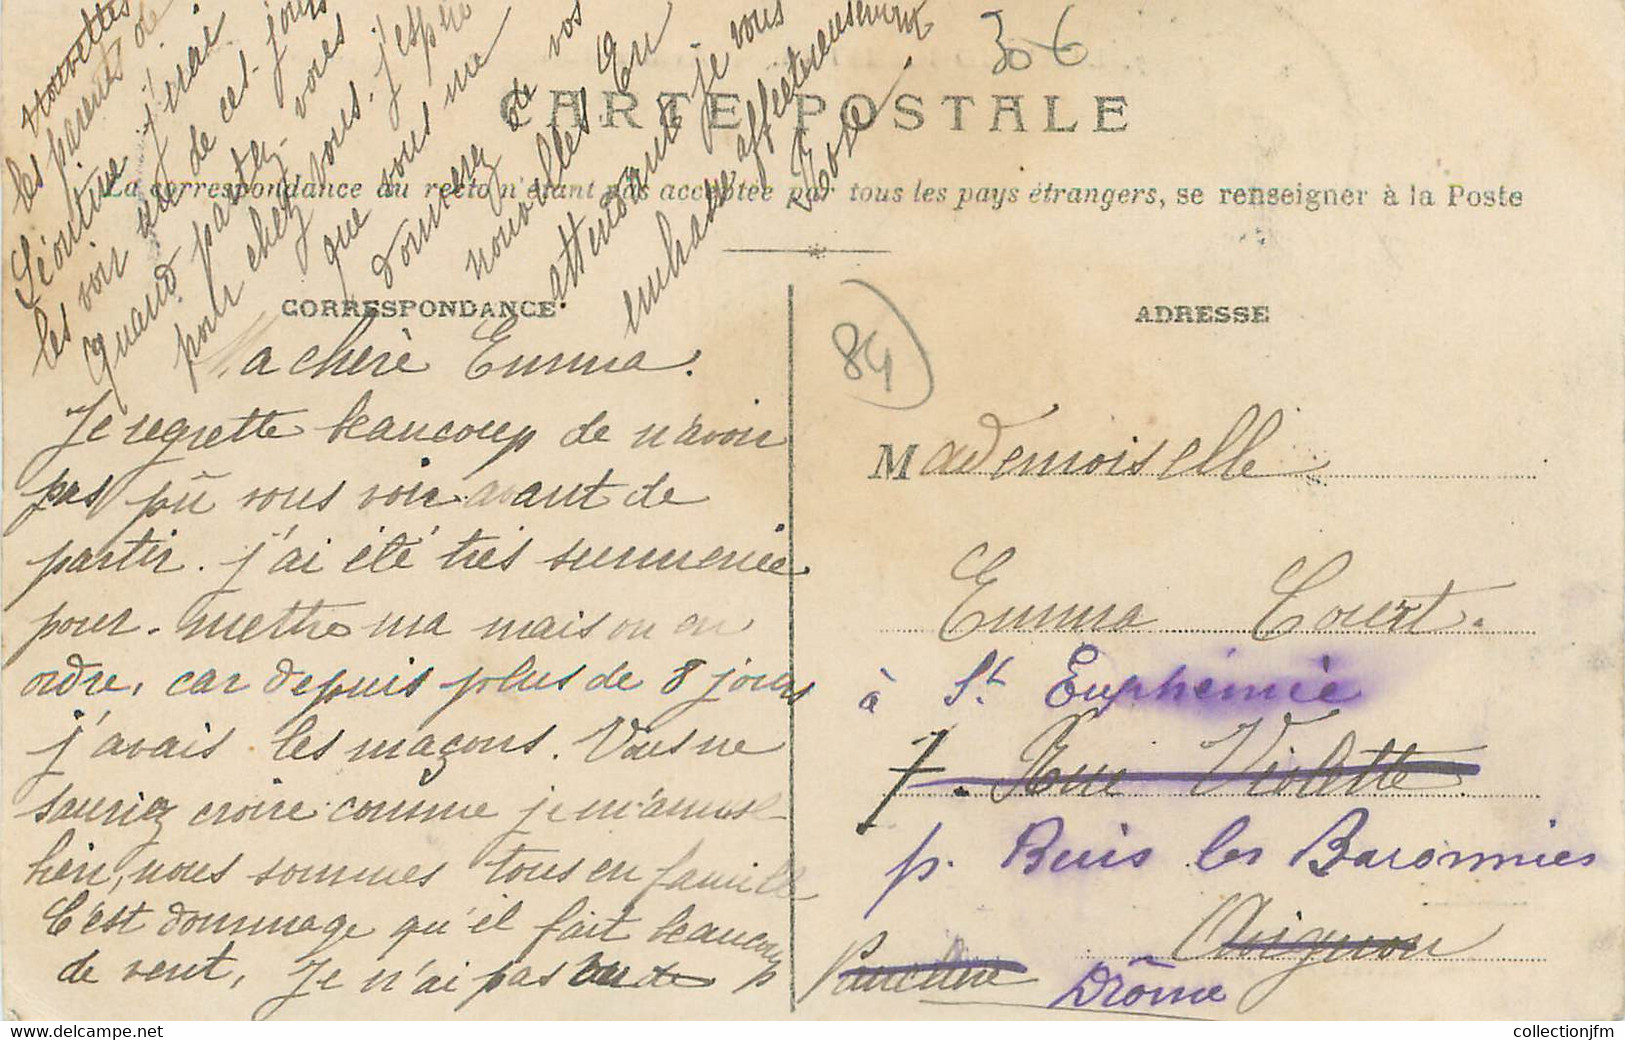 306
CARTE POSTALE
La correspondance au recto n'étant pas acceptée par tous les pays étrangers, se renseigner à la Poste
CORRESPONDANCE
Ma cherè Emma.
Je regrette beaucoup de n'avoir
pas pû vous voir avant de
partir. j'ai été très surmenée
pour. mettre ma maison en
ordre, car depuis plus de 8 jours
j'avais les maçons. Vous ne
sauriez croire comme je m'amuse
bien, nous sommes tous en famille
C'est dommage qu'il fait beaucoup
de vent, Je n'ai pas vu de
nouvelles
les parents de
Léontine j'irai
les voir un de ces jours
Quand partez-vous
pour chez vous. j'espère
que vous me
donnerez de vos
nouvelles En
attendant je vous
embrasse affectueusement
Rose
84
ADRESSE
Mademoiselle
Emma Couert.
à St Euphémie
7. Rue Violette
p. Buis les Baronnies
Avignon
Vaucluse Drôme
collectionjfm